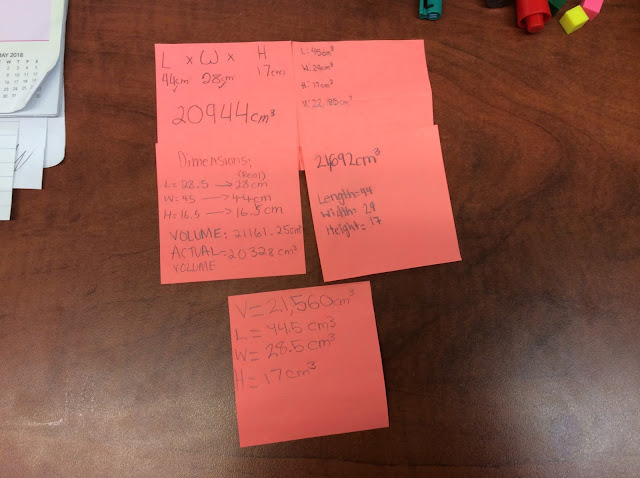 MAY 2016
L x W x H
44cm 28cm 17cm
20944cm³
L: 45cm³
W: 29cm³
H: 17cm³
V: 22,185cm³
Dimensions:
(Real)
L = 28.5 → 28cm
W = 45 → 44cm
H = 16.5 → 16.5cm
VOLUME: 21161.25cm³
ACTUAL = 20328cm³
VOLUME
21,692cm³
Length = 44
Width = 29
Height = 17
V = 21,560cm³
L = 44.5cm³
W = 28.5cm³
H = 17cm³